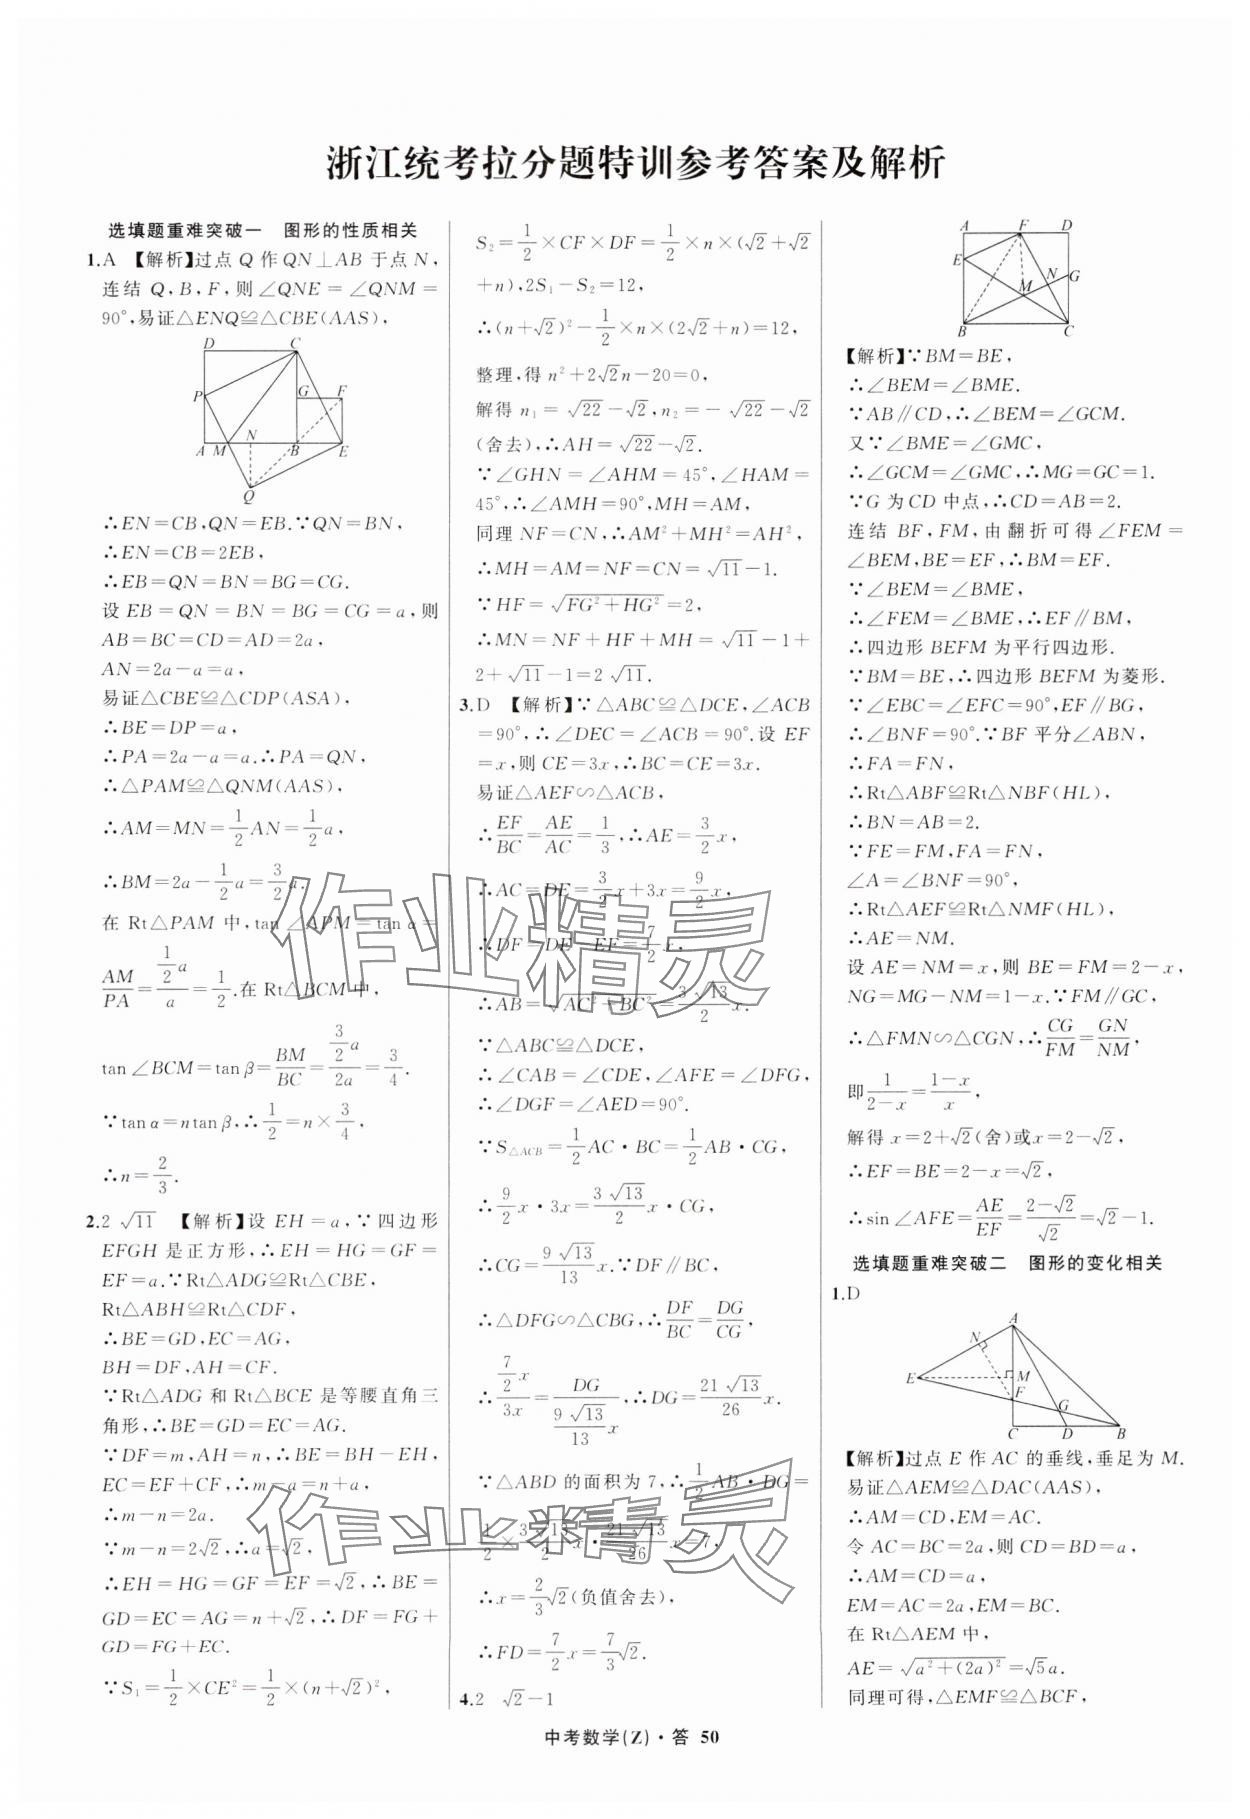 浙江统考拉分题特训参考答案及解析
选填题重难突破一 图形的性质相关
1.A 【解析】过点 Q 作 QN⊥AB 于点 N,
连结 Q,B,F,则∠QNE=∠QNM=
90°,易证△ENQ≌△CBE(AAS),
D C
P G F
A M N B E
Q
∴EN=CB,QN=EB.∵QN=BN,
∴EN=CB=2EB,
∴EB=QN=BN=BG=CG.
设 EB=QN=BN=BG=CG=a,则
AB=BC=CD=AD=2a,
AN=2a-a=a,
易证△CBE≌△CDP(ASA),
∴BE=DP=a,
∴PA=2a-a=a.∴PA=QN,
∴△PAM≌△QNM(AAS),
∴AM=MN=1/2AN=1/2a,
∴BM=2a-1/2a=3/2a.
在 Rt△PAM 中,tan∠APM=tanα=
AM/PA=(1/2a)/a=1/2.在 Rt△BCM 中,
tan∠BCM=tanβ=BM/BC=(3/2a)/2a=3/4.
∵tanα=ntanβ,∴1/2=n×3/4,
∴n=2/3.
2.2√11 【解析】设 EH=a,∵四边形
EFGH 是正方形,∴EH=HG=GF=
EF=a.∵Rt△ADG≌Rt△CBE,
Rt△ABH≌Rt△CDF,
∴BE=GD,EC=AG,
BH=DF,AH=CF.
∵Rt△ADG 和 Rt△BCE 是等腰直角三
角形,∴BE=GD=EC=AG.
∵DF=m,AH=n,∴BE=BH-EH,
EC=EF+CF,∴m-a=n+a,
∴m-n=2a.
∵m-n=2√2,∴a=√2,
∴EH=HG=GF=EF=√2,∴BE=
GD=EC=AG=n+√2,∴DF=FG+
GD=FG+EC.
∵S₁=1/2×CE²=1/2×(n+√2)²,
S₂=1/2×CF×DF=1/2×n×(√2+√2
+n),2S₁-S₂=12,
∴(n+√2)²-1/2×n×(2√2+n)=12,
整理,得 n²+2√2n-20=0,
解得 n₁=√22-√2,n₂=-√22-√2
(舍去),∴AH=√22-√2.
∵∠GHN=∠AHM=45°,∠HAM=
45°,∴∠AMH=90°,MH=AM,
同理 NF=CN,∴AM²+MH²=AH²,
∴MH=AM=NF=CN=√11-1.
∵HF=√(FG²+HG²)=2,
∴MN=NF+HF+MH=√11-1+
2+√11-1=2√11.
3.D 【解析】∵△ABC≌△DCE,∠ACB
=90°,∴∠DEC=∠ACB=90°.设 EF
=x,则 CE=3x,∴BC=CE=3x.
易证△AEF∽△ACB,
∴EF/BC=AE/AC=1/3,∴AE=3/2x,
∴AC=DE=3/2x+3x=9/2x,
∴DF=DE-EF=7/2x,
∴AB=√(AC²+BC²)=3√13/2x.
∵△ABC≌△DCE,
∴∠CAB=∠CDE,∠AFE=∠DFG,
∴∠DGF=∠AED=90°.
∵S△ACB=1/2AC·BC=1/2AB·CG,
∴9/2x·3x=3√13/2x·CG,
∴CG=9√13/13x.∵DF∥BC,
∴△DFG∽△CBG,∴DF/BC=DG/CG,
∴(7/2x)/3x=DG/(9√13/13x),∴DG=21√13/26x.
∵△ABD 的面积为 7,∴1/2AB·DG=
1/2×3√13/2x·21√13/26x=7,
∴x=2/3√2(负值舍去),
∴FD=7/2x=7/3√2.
4.2 √2-1
A F D
E N G
M
B C
【解析】∵BM=BE,
∴∠BEM=∠BME.
∵AB∥CD,∴∠BEM=∠GCM.
又∵∠BME=∠GMC,
∴∠GCM=∠GMC,∴MG=GC=1.
∵G 为 CD 中点,∴CD=AB=2.
连结 BF,FM,由翻折可得∠FEM=
∠BEM,BE=EF,∴BM=EF.
∵∠BEM=∠BME,
∴∠FEM=∠BME,∴EF∥BM,
∴四边形 BEFM 为平行四边形.
∵BM=BE,∴四边形 BEFM 为菱形.
∵∠EBC=∠EFC=90°,EF∥BG,
∴∠BNF=90°.∵BF 平分∠ABN,
∴FA=FN,
∴Rt△ABF≌Rt△NBF(HL),
∴BN=AB=2.
∵FE=FM,FA=FN,
∠A=∠BNF=90°,
∴Rt△AEF≌Rt△NMF(HL),
∴AE=NM.
设 AE=NM=x,则 BE=FM=2-x,
NG=MG-NM=1-x.∵FM∥GC,
∴△FMN∽△CGN,∴CG/FM=GN/NM,
即1/(2-x)=(1-x)/x,
解得 x=2+√2(舍)或x=2-√2,
∴EF=BE=2-x=√2,
∴sin∠AFE=AE/EF=(2-√2)/√2=√2-1.
选填题重难突破二 图形的变化相关
1.D
A
N
E M
F
G
C D B
【解析】过点 E 作 AC 的垂线,垂足为 M.
易证△AEM≌△DAC(AAS),
∴AM=CD,EM=AC.
令 AC=BC=2a,则 CD=BD=a,
∴AM=CD=a,
EM=AC=2a,EM=BC.
在 Rt△AEM 中,
AE=√(a²+(2a)²)=√5a.
同理可得,△EMF≌△BCF,
中考数学(Z)·答 50
作业精灵
作业精灵